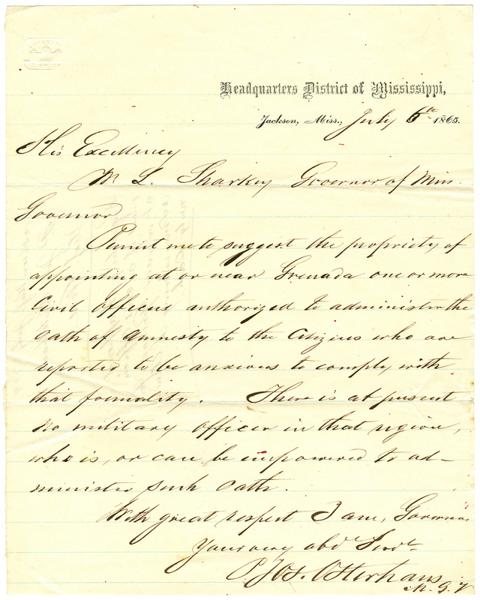 Headquarters District of Mississippi,
Jackson, Miss., July 6th 1865.
His Excellency
W L. Sharkey Governor of Miss.
Governor
Permit me to suggest the propriety of
appointing at or near Grenada one or more
Civil Officers authorized to administer the
Oath of Amnesty to the Citizens who are
reported to be anxious to comply with
that formality. There is at present
no military officer in that region,
who is, or can, be empowered to ad-
minister such oath.
With great respect I am, Governor
Your very obdt Servt.
P. Jos. Osterhaus
M. G. V